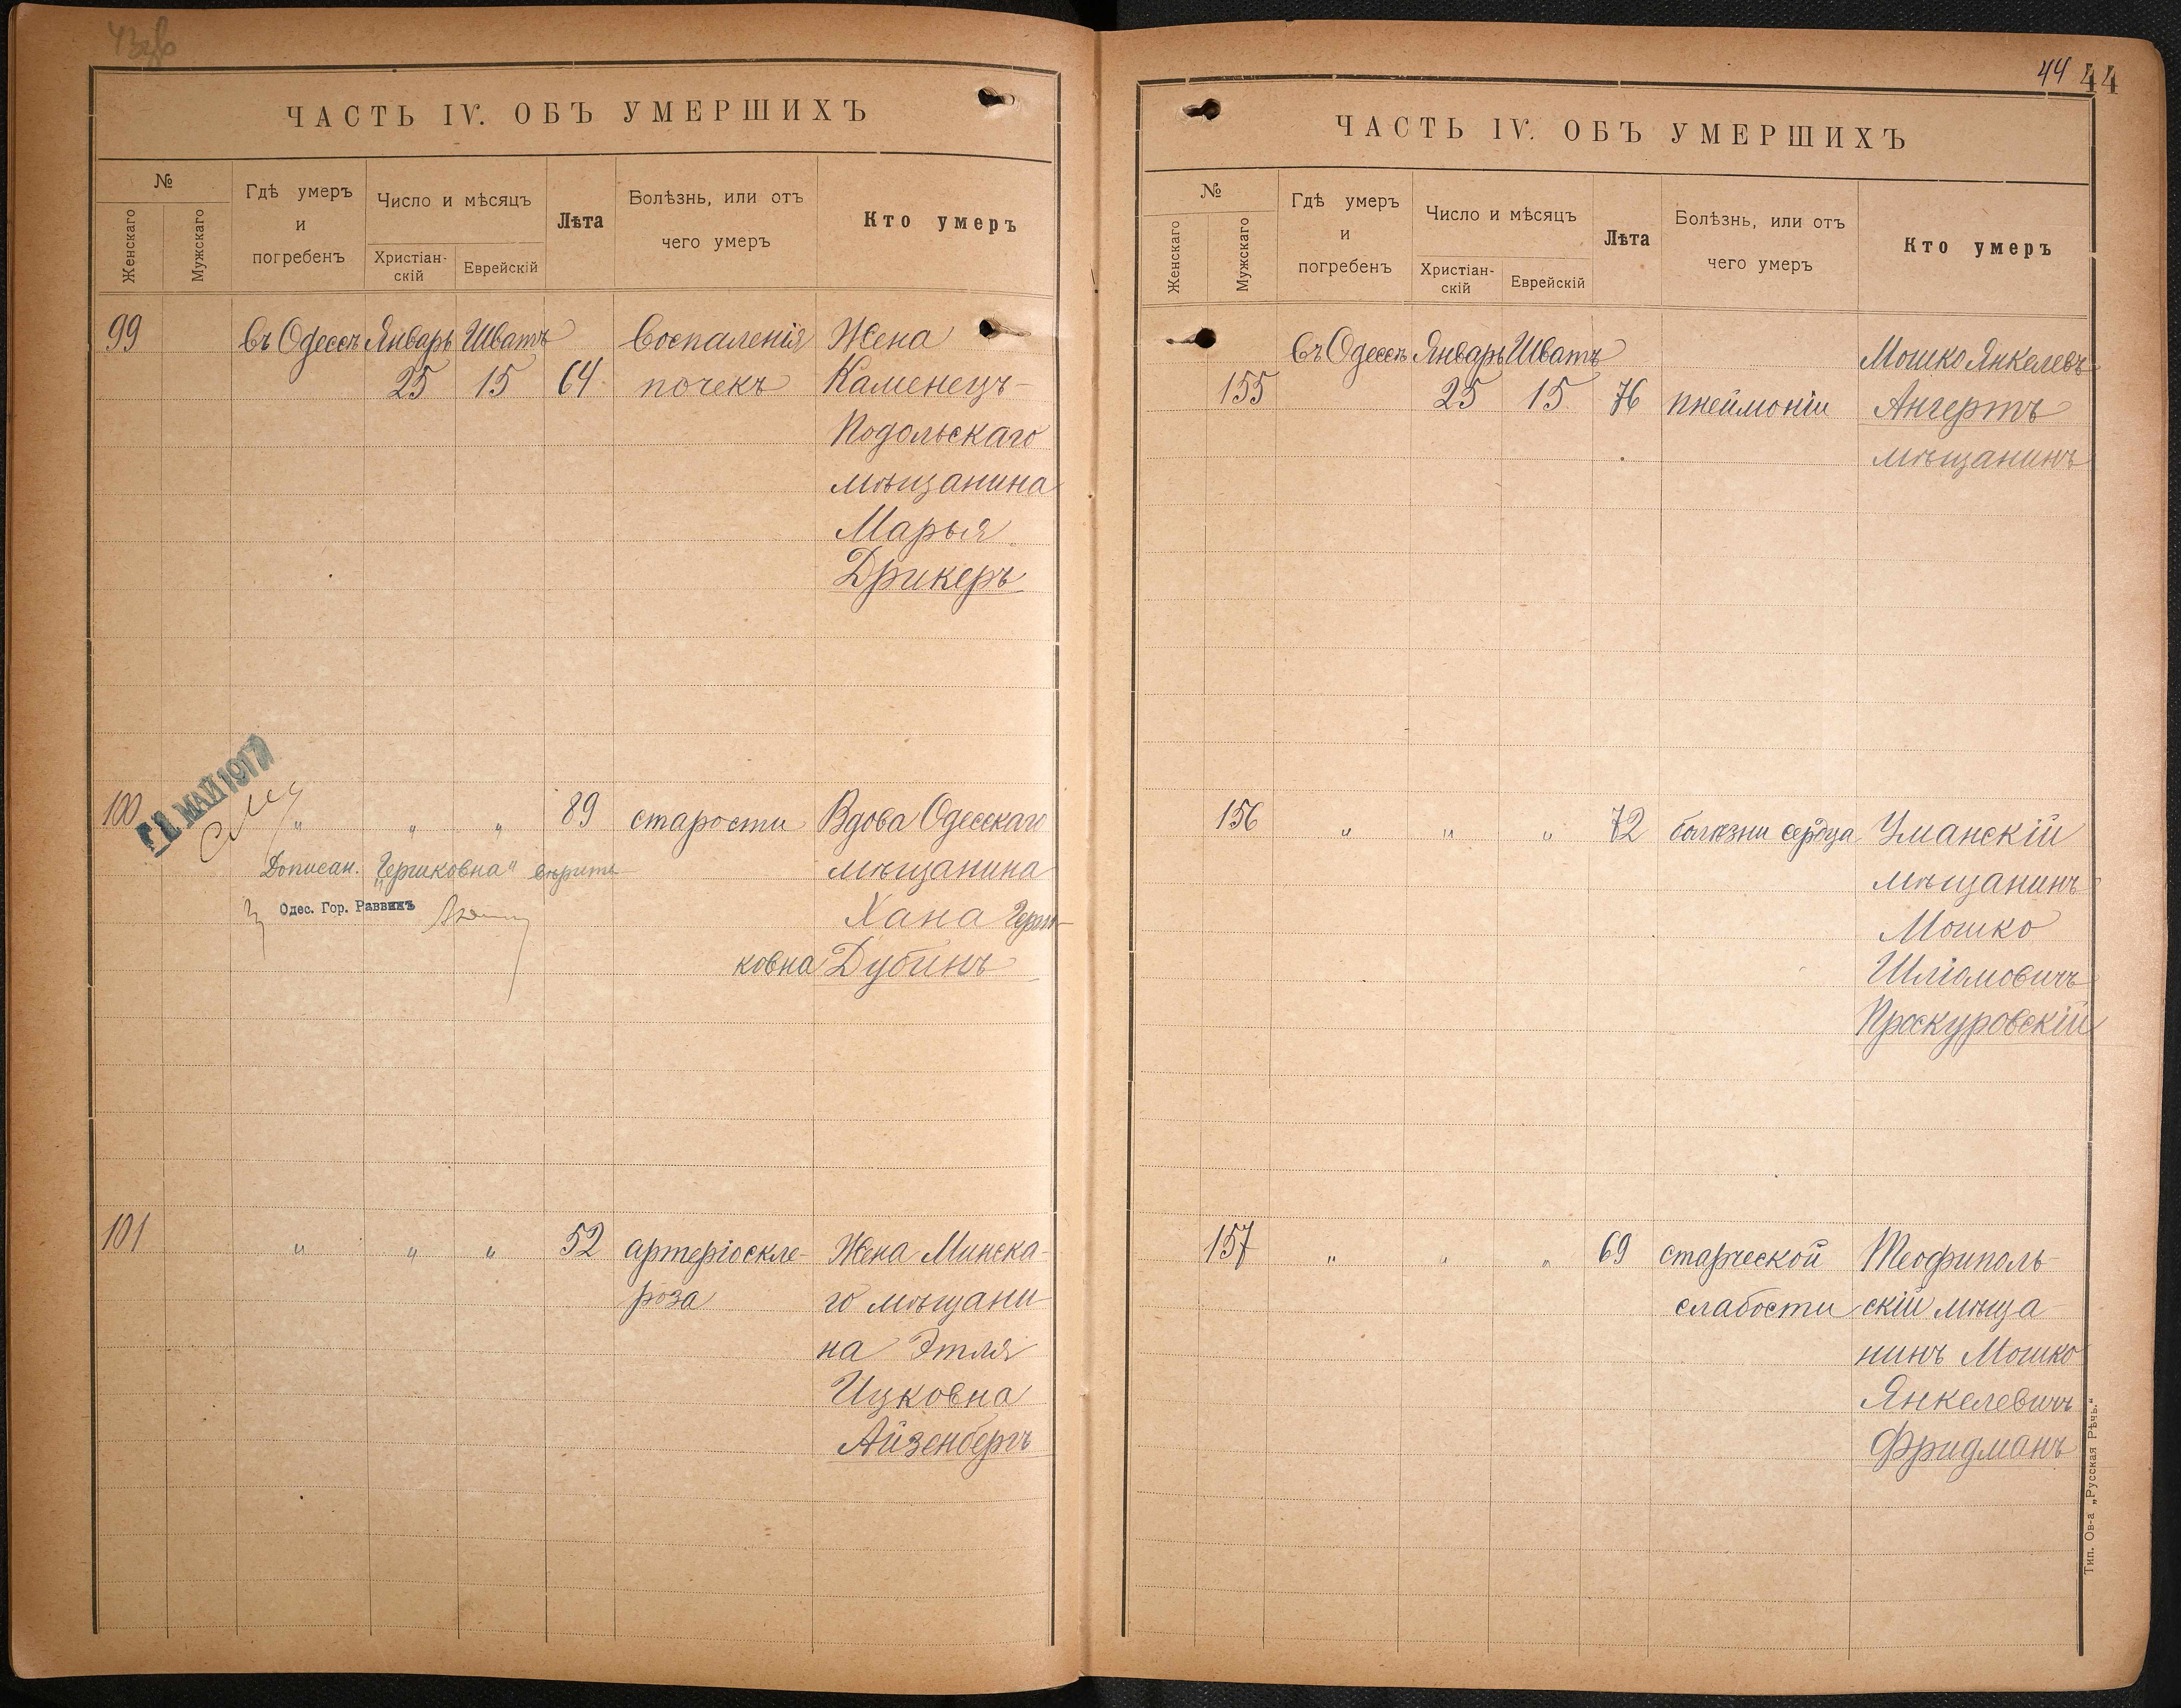 ЧАСТЬ IV. ОБЪ УМЕРШИХЪ
№
Женскаго
Мужскаго
Гдѣ умеръ
и
погребенъ
Число и мѣсяцъ
Христіан-
скій
Еврейскій
Лѣта
Болѣзнь, или отъ
чего умеръ
Кто умеръ
99 въ Одессѣ Январь Шватъ воспаленія Жена
25 15 64 почекъ Каменецъ-
Подольскаго
мѣщанина
Марья
Дрикеръ
1 МАЙ 1917
100 " " " 89 старости Вдова Одесскаго
Дописан. "Гершковна" вѣрите мѣщанина
Одес. Гор. Раввинъ Хана Герш-
ковна Дубинъ
101 " " " 52 артеріоскле- Жена Минска-
роза го мѣщани-
на Этля
Ицковна
Айзенбергъ
44 44
ЧАСТЬ IV. ОБЪ УМЕРШИХЪ
№
Женскаго
Мужскаго
Гдѣ умеръ
и
погребенъ
Число и мѣсяцъ
Христіан-
скій
Еврейскій
Лѣта
Болѣзнь, или отъ
чего умеръ
Кто умеръ
въ Одессѣ Январь Шватъ Мошко Янкелевъ
155 25 15 76 пнеймоніи Ангертъ
мѣщанинъ
156 " " " 72 болѣзни сердца Уманскій
мѣщанинъ
Мошко
Шліомовичъ
Проскуровскій
157 " " " 69 старческой Теофиполь-
слабости скій мѣща-
нинъ Мошко
Янкелевичъ
Фридманъ
Тип. Ов-а „Русская Рѣчь.“